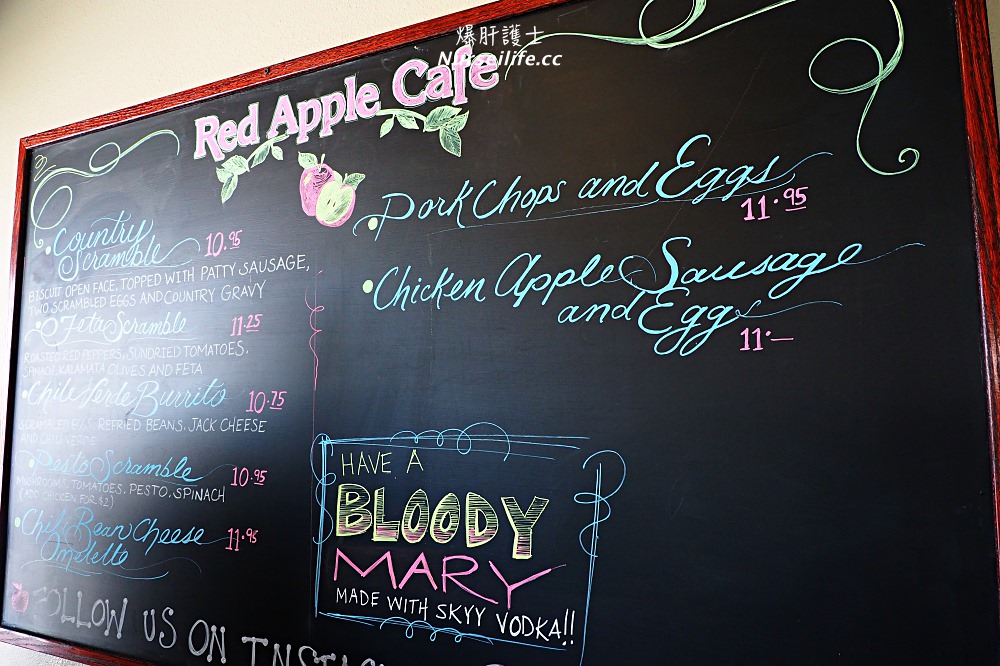 爆肝護士
Nurseilife.cc
Red Apple Cafe
Country
Scramble 10.95
BISCUIT OPEN FACE, TOPPED WITH PATTY SAUSAGE,
TWO SCRAMBLED EGGS AND COUNTRY GRAVY
Feta Scramble 11.25
ROASTED RED PEPPERS, SUNDRIED TOMATOES,
SPINACH, KALAMATA OLIVES AND FETA
Chile Verde Burrito 10.75
SCRAMBLED EGGS, REFRIED BEANS, JACK CHEESE
AND CHILI VERDE
Pesto Scramble 10.95
MUSHROOMS, TOMATOES, PESTO, SPINACH
(ADD CHICKEN FOR $2)
Chili Bean Cheese
Omelette 11.95
FOLLOW US ON
Pork Chops and Eggs
11.95
Chicken Apple Sausage
and Eggs
11.—
HAVE A
BLOODY
MARY
MADE WITH SKYY VODKA!!